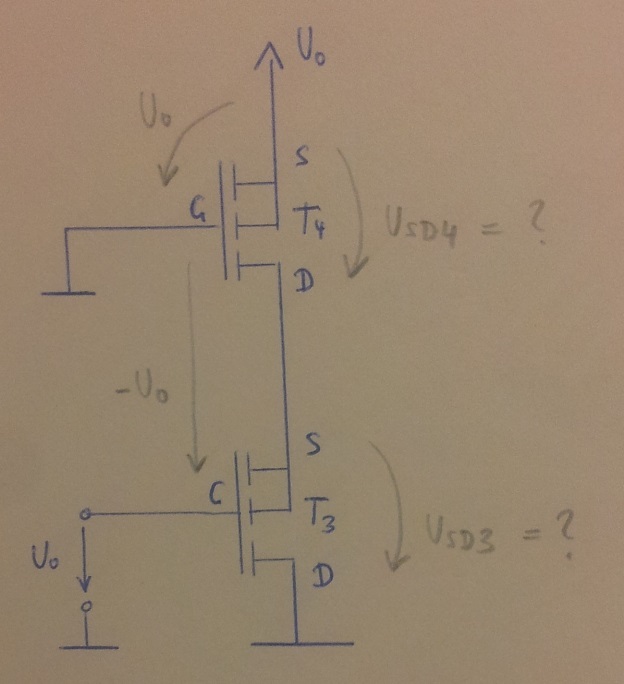 U₀
U₀
S
G
T₄
U_SD4 = ?
D
-U₀
S
G
T₃
U_SD3 = ?
U₀
D